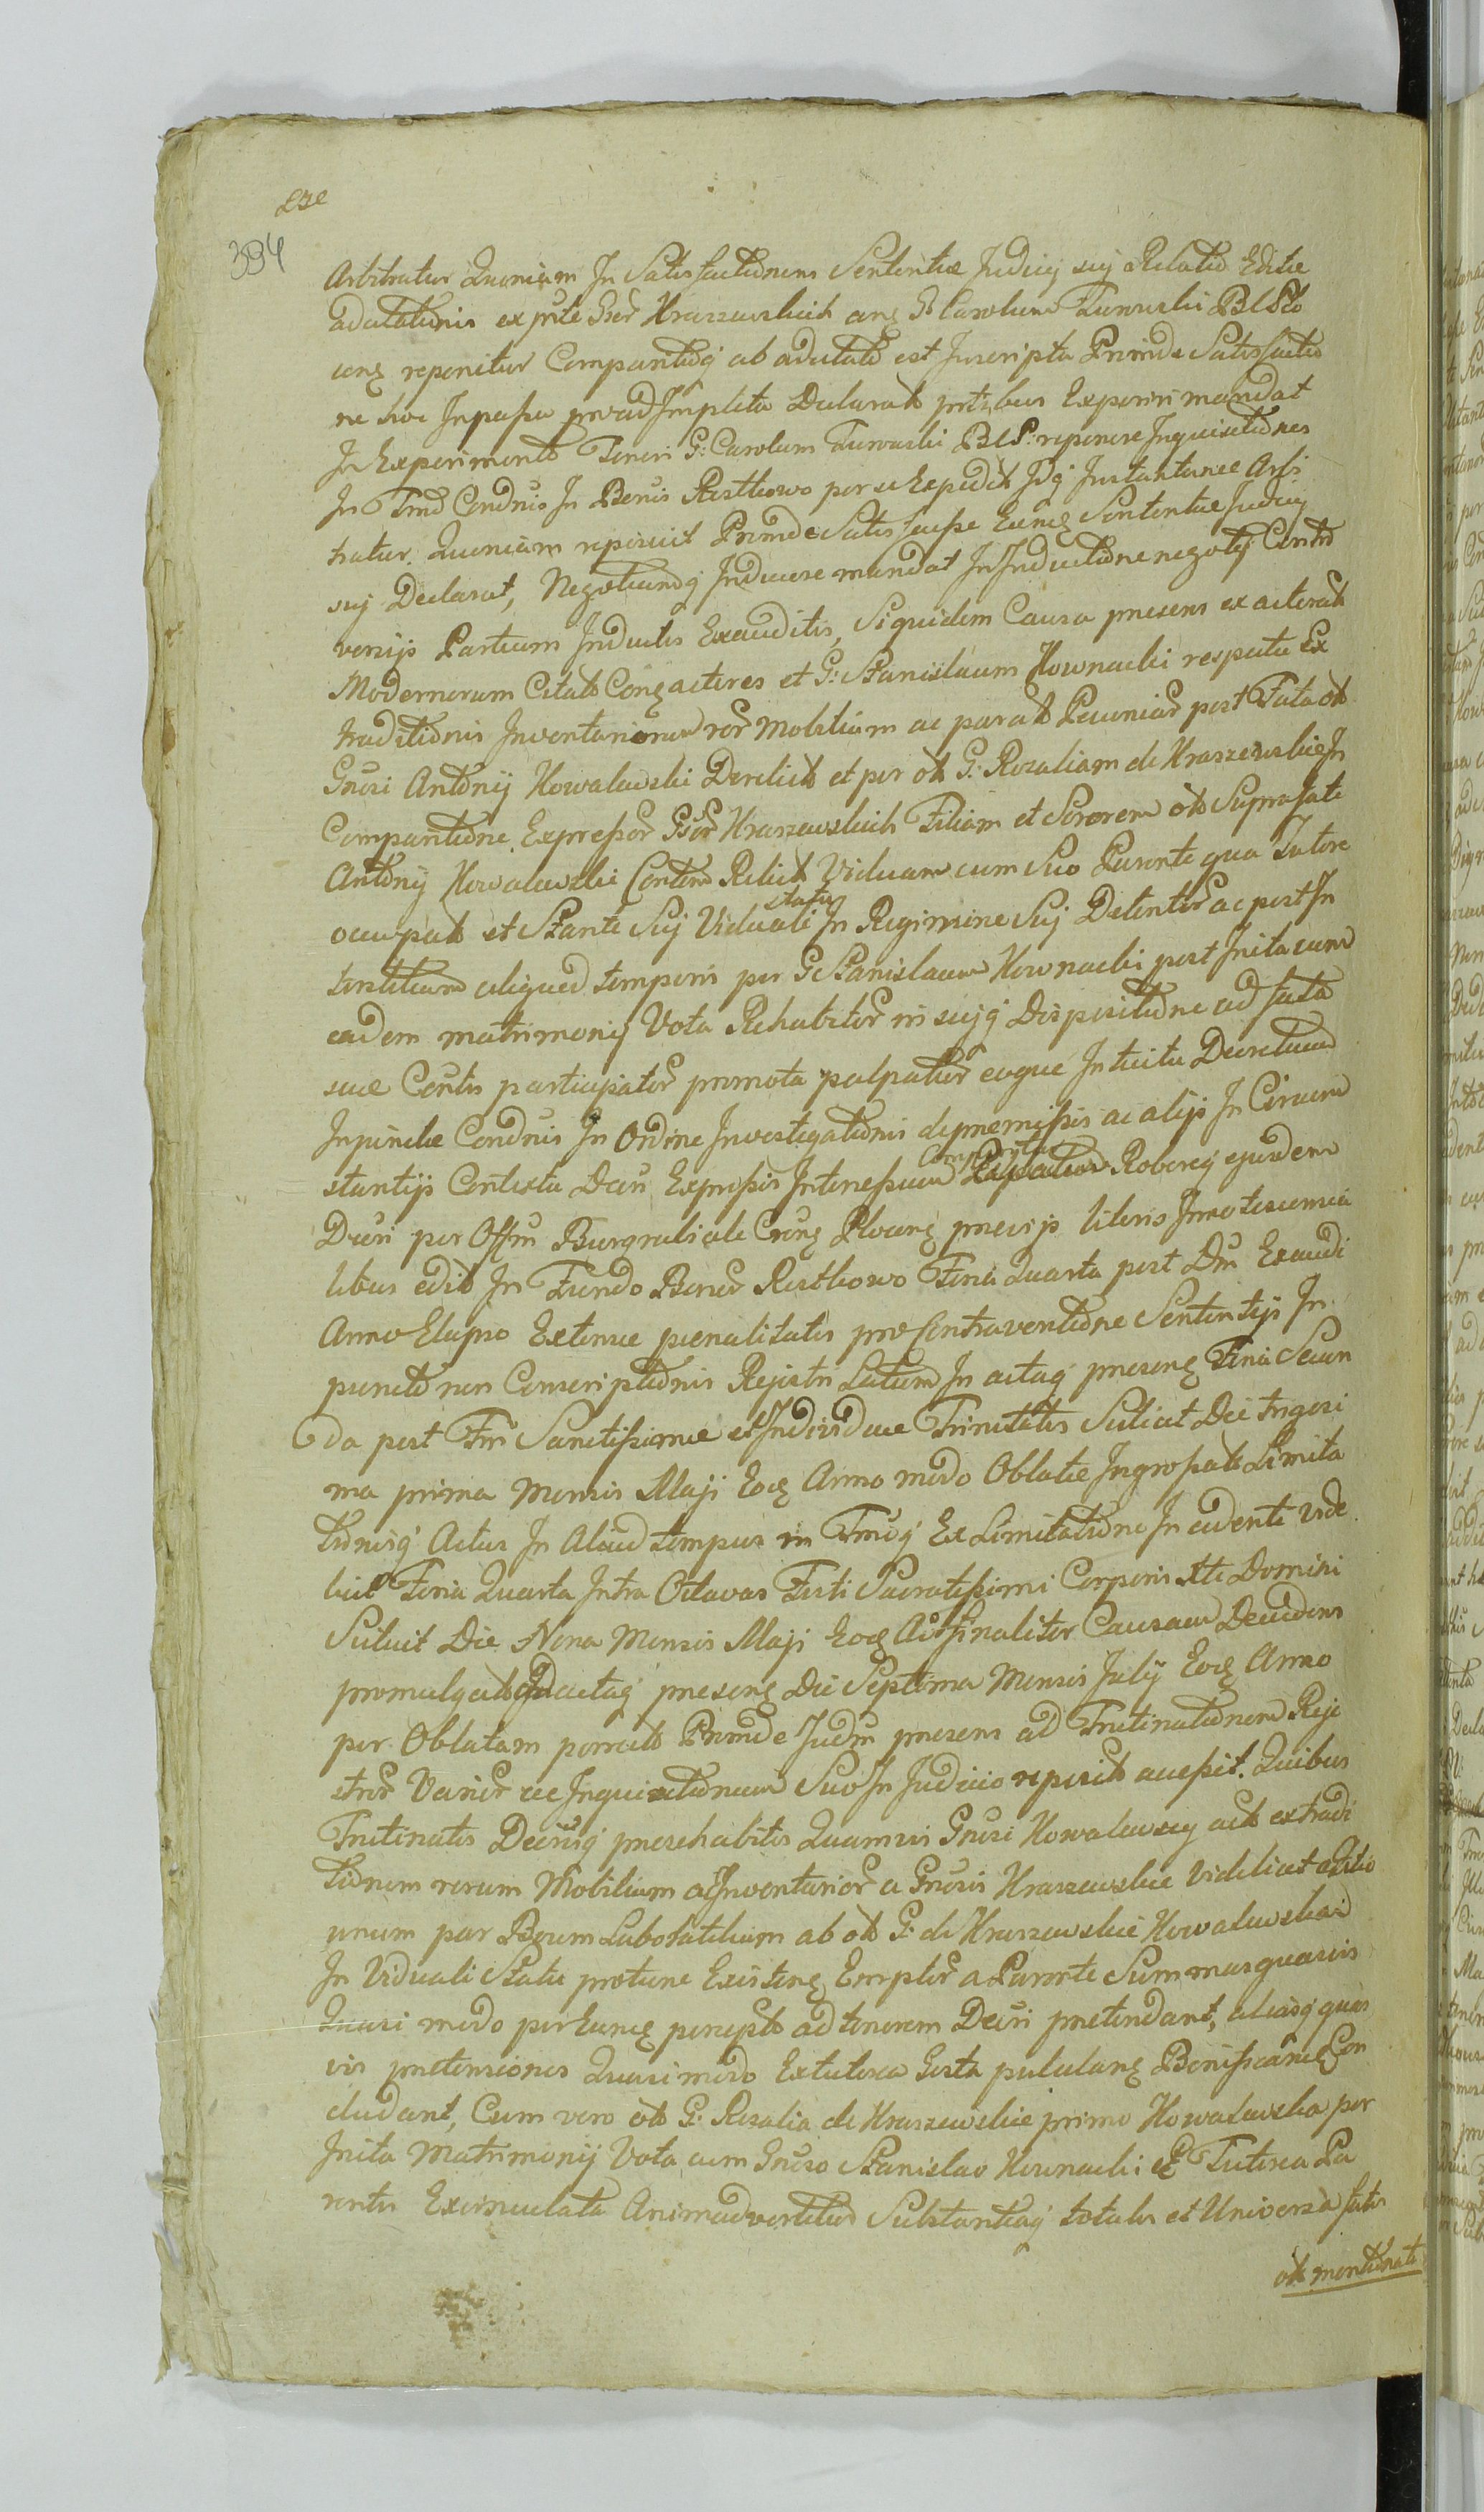 394
Arbitratur Quoniam In Satisfactionem Sententiæ Judicij sui Relatio Editæ
adcitationis ex pte Gsor Kraszewskich cong G: Carolum Turowski BCPlo
cens reponitur Comparitioq ab adcitato est Inscripta Proinde Satisfactio
ne hoc In passu præad Impleta Declarat ptibus Experiri mandat
In Experimento Teneri G: Carolum Turowski BCP: reponere Inquisitiones
In Tmo Condnis In Bonis Rostkowo per se Expedit Idq Instantaneæ Arbi
tratur. Quoniam reposuit Proinde Satisfecisse Eundem Sententiæ Judicij
sui Declarat, Negotiumq Inducere mandat In Inductione negotij Contro
versijs Partium Inductis Exauditis, Siquidem Causa præsens ex actorat
Modernorum Citato Cong actores et G: Stanislaum Kownacki respectu Ex
traditionis Inventariorum rer Mobilium ac parat Pecuniar post Fata ol
Gnosi Antonij Kowalewski Derelict et per ol G: Rozaliam de Kraszewskie In
Comparitione Expressor Gsor Kraszewskich Filiam et Sororem ol Suprafati
Antonij Kowalewski Contem Relict Viduam cum Suo Parente qua Tutore
occupat et Stante Sui Viduali statu In Regimine Sui Detentor ac post In
terstitium aliquod temporis per G Stanislaum Kownacki post Inita cum
eadem matrimonij Vota Rehabitor in suiq Dispositione ad fata
suæ Contis participator promota palpatur eoque Intuitu Decretum
In pincto Condnis In Ordine Investigationis de præmissis ac alijs In Circum
stantijs Contextu Decri Expressis Interessum Comparitur Roboreq ejusdem
Decri per Offm Burgrabiale Crens Plocens præviis literis Innotescentia
libus edit In Fundo Bonor Rostkowo Feria Quarta post Dm Exaudi
Anno Elapso Extensæ poenalitatis pro Contraventione Sententijs In
puncto non Conscriptionis Rejestri Latum In actaq præsens Feria Secun
da post Fm Sanctissimæ et Individuæ Trinitatis Scilicet Die trigesi
ma prima Mensis Maji Eoq Anno modo Oblatæ Ingrossat Limita
tionisq Actus In Aliud tempus in Tmoq Ex Limitatione Incidenti vide
licet Feria Quarta Intra Octavas Festi Sacratissimi Corporis Xti Domini
Scilicet Die Nona Mensis Maji Eoq Ao finaliter Causam Decidens
promulgat In actaq præsens Die Septima Mensis Julij Eoq Anno
per Oblatam porrect Proinde Judm præsens ad Trutinationem Reje
stror Varior ac Inquisitionum Suo In Judicio reposit accessit. Quibus
Trutinatis Decrisq præhabitis Quamvis Gnosi Kowalewscy act extradi
tionem rerum Mobilium ac Inventarior a Gnosis Kraszewskie Videlicet
unum par Boum Laboratilium ab ol G: de Kraszewskie Kowalewska
In Viduali Statu protunc Existens Emptor a Parente Summasquasvis
Quasi modo per Eundem percept ad tenorem Decri prætendant, aliasq quas
vis prætensiones Quasi modo Ex tutorea Gesta pululans Bonificandas Con
cludant, Cum vero ol G: Rozalia de Kraszewskie primo Kowalewska per
Inita Matrimonij Vota cum Gnoso Stanislao Kownacki a Tutorea Pa
rentis Exvinculata Animadvertitur Substantiaq totalis et Universa fatis
ol mentionati